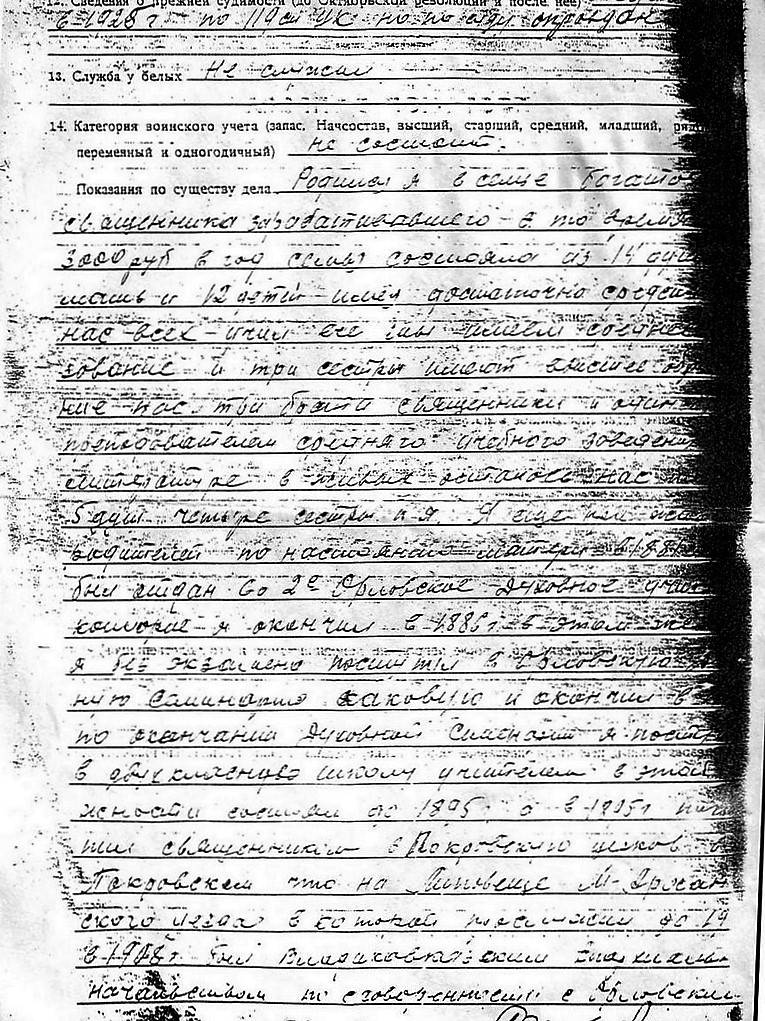 12. Сведения о прежней судимости (до Октябрьской революции и после нее)
в 1928 г. по 119 ст УК но по суду оправдан
13. Служба у белых Не служил
14. Категория воинского учета (запас. Начсостав, высший, старший, средний, младший, ряд
переменный и одногодичный) Не состоит.
Показания по существу дела Родился я в семье богато
священника зарабатывавшего в то время
3000 руб в год семья состояла из 14 душ
мать и 12 детей имея достаточно средс
нас всех учил все мы имеем
зование и три сестры имеют высшее обр
ние нас три брата священники и один
преподавателем среднего учебного заведени
литературе в живых осталось нас
5 душ четыре сестры и я. Я еще при
родителей по настоянию матери в 188
был отдан во 2е Орловское Духовное учи
которое я окончил в 1886 г в этом же
я без экзамена поступил в Орловскую
ную Семинарию каковую и окончил в
по окончании Духовной Семинарии я посту
в двухклассную школу учителем в этой
жности состоял до 1895, а в 1895 г
тил священником в Покровскую церковь
Покровском что на Липовеще М-Архан
ского уезда в которой прослужил до 19
в 1908 г. был Владикавказским
начальством по договоренности с Орловским